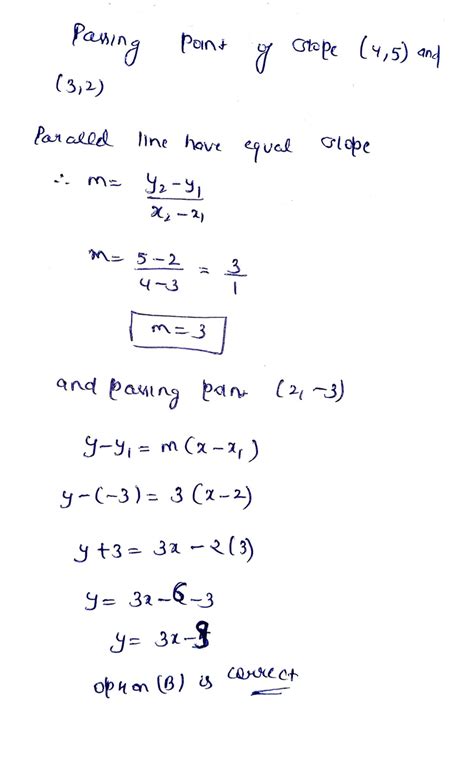 Passing point of slope (4,5) and
(3,2)
Paralled line have equal slope
∴ m= y₂-y₁/x₂-x₁
m= 5-2/4-3 = 3/1
m=3
and passing point (2,-3)
y-y₁ = m(x-x₁)
y-(-3) = 3(x-2)
y+3 = 3x-2(3)
y= 3x-6-3
y= 3x-9
option (B) is correct